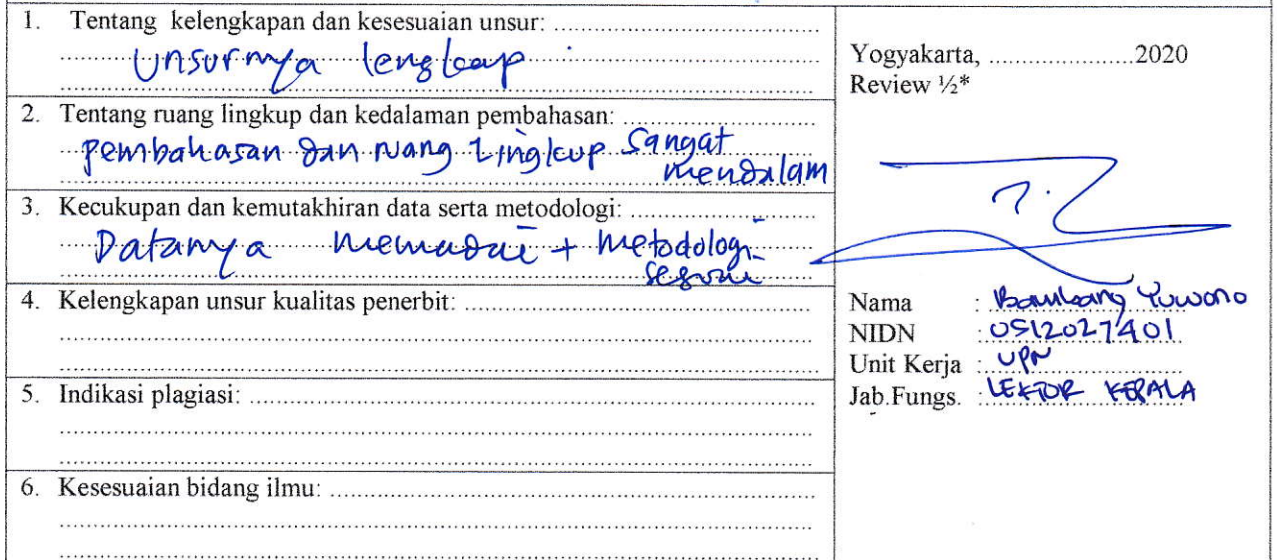 1. Tentang kelengkapan dan kesesuaian unsur: ......................................
Unsurnya lengkap
2. Tentang ruang lingkup dan kedalaman pembahasan: ............................
pembahasan dan ruang Lingkup sangat
mendalam
3. Kecukupan dan kemutakhiran data serta metodologi: ..........................
Datanya memadai + metodologi
sesuai
4. Kelengkapan unsur kualitas penerbit: ..................................................
5. Indikasi plagiasi: ..................................................................................
6. Kesesuaian bidang ilmu: ......................................................................
Yogyakarta, ......................2020
Review ½*
Nama : Bambang Yuwono
NIDN : 0512027401
Unit Kerja : UPN
Jab.Fungs. : LEKTOR KEPALA